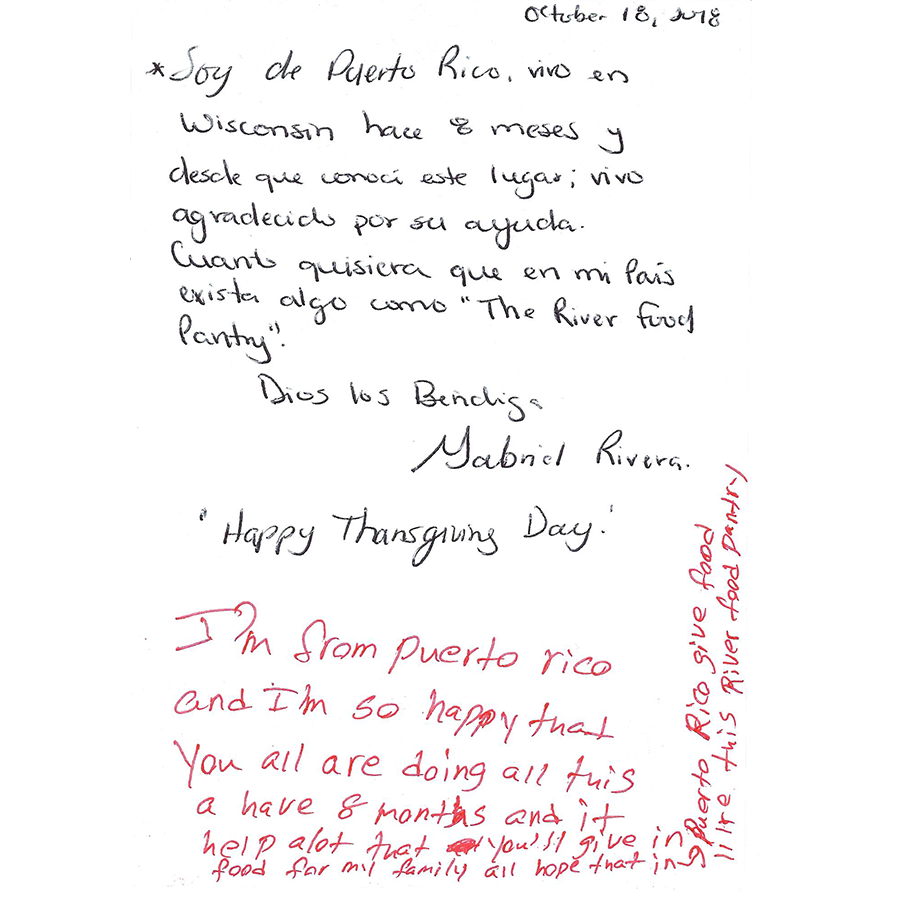 October 18, 2018
*Soy de Puerto Rico, vivo en
Wisconsin hace 8 meses y
desde que conocí este lugar; vivo
agradecido por su ayuda.
Cuanto quisiera que en mi País
exista algo como "The River Food
Pantry".
Dios los Bendiga
Gabriel Rivera.
'Happy Thansgiving Day.'
I'm from puerto rico
and I'm so happy that
You all are doing all this
a have 8 months and it
help alot that you'll give in
food for mil family all hope that in
Puerto Rico give food
like this River food pantry